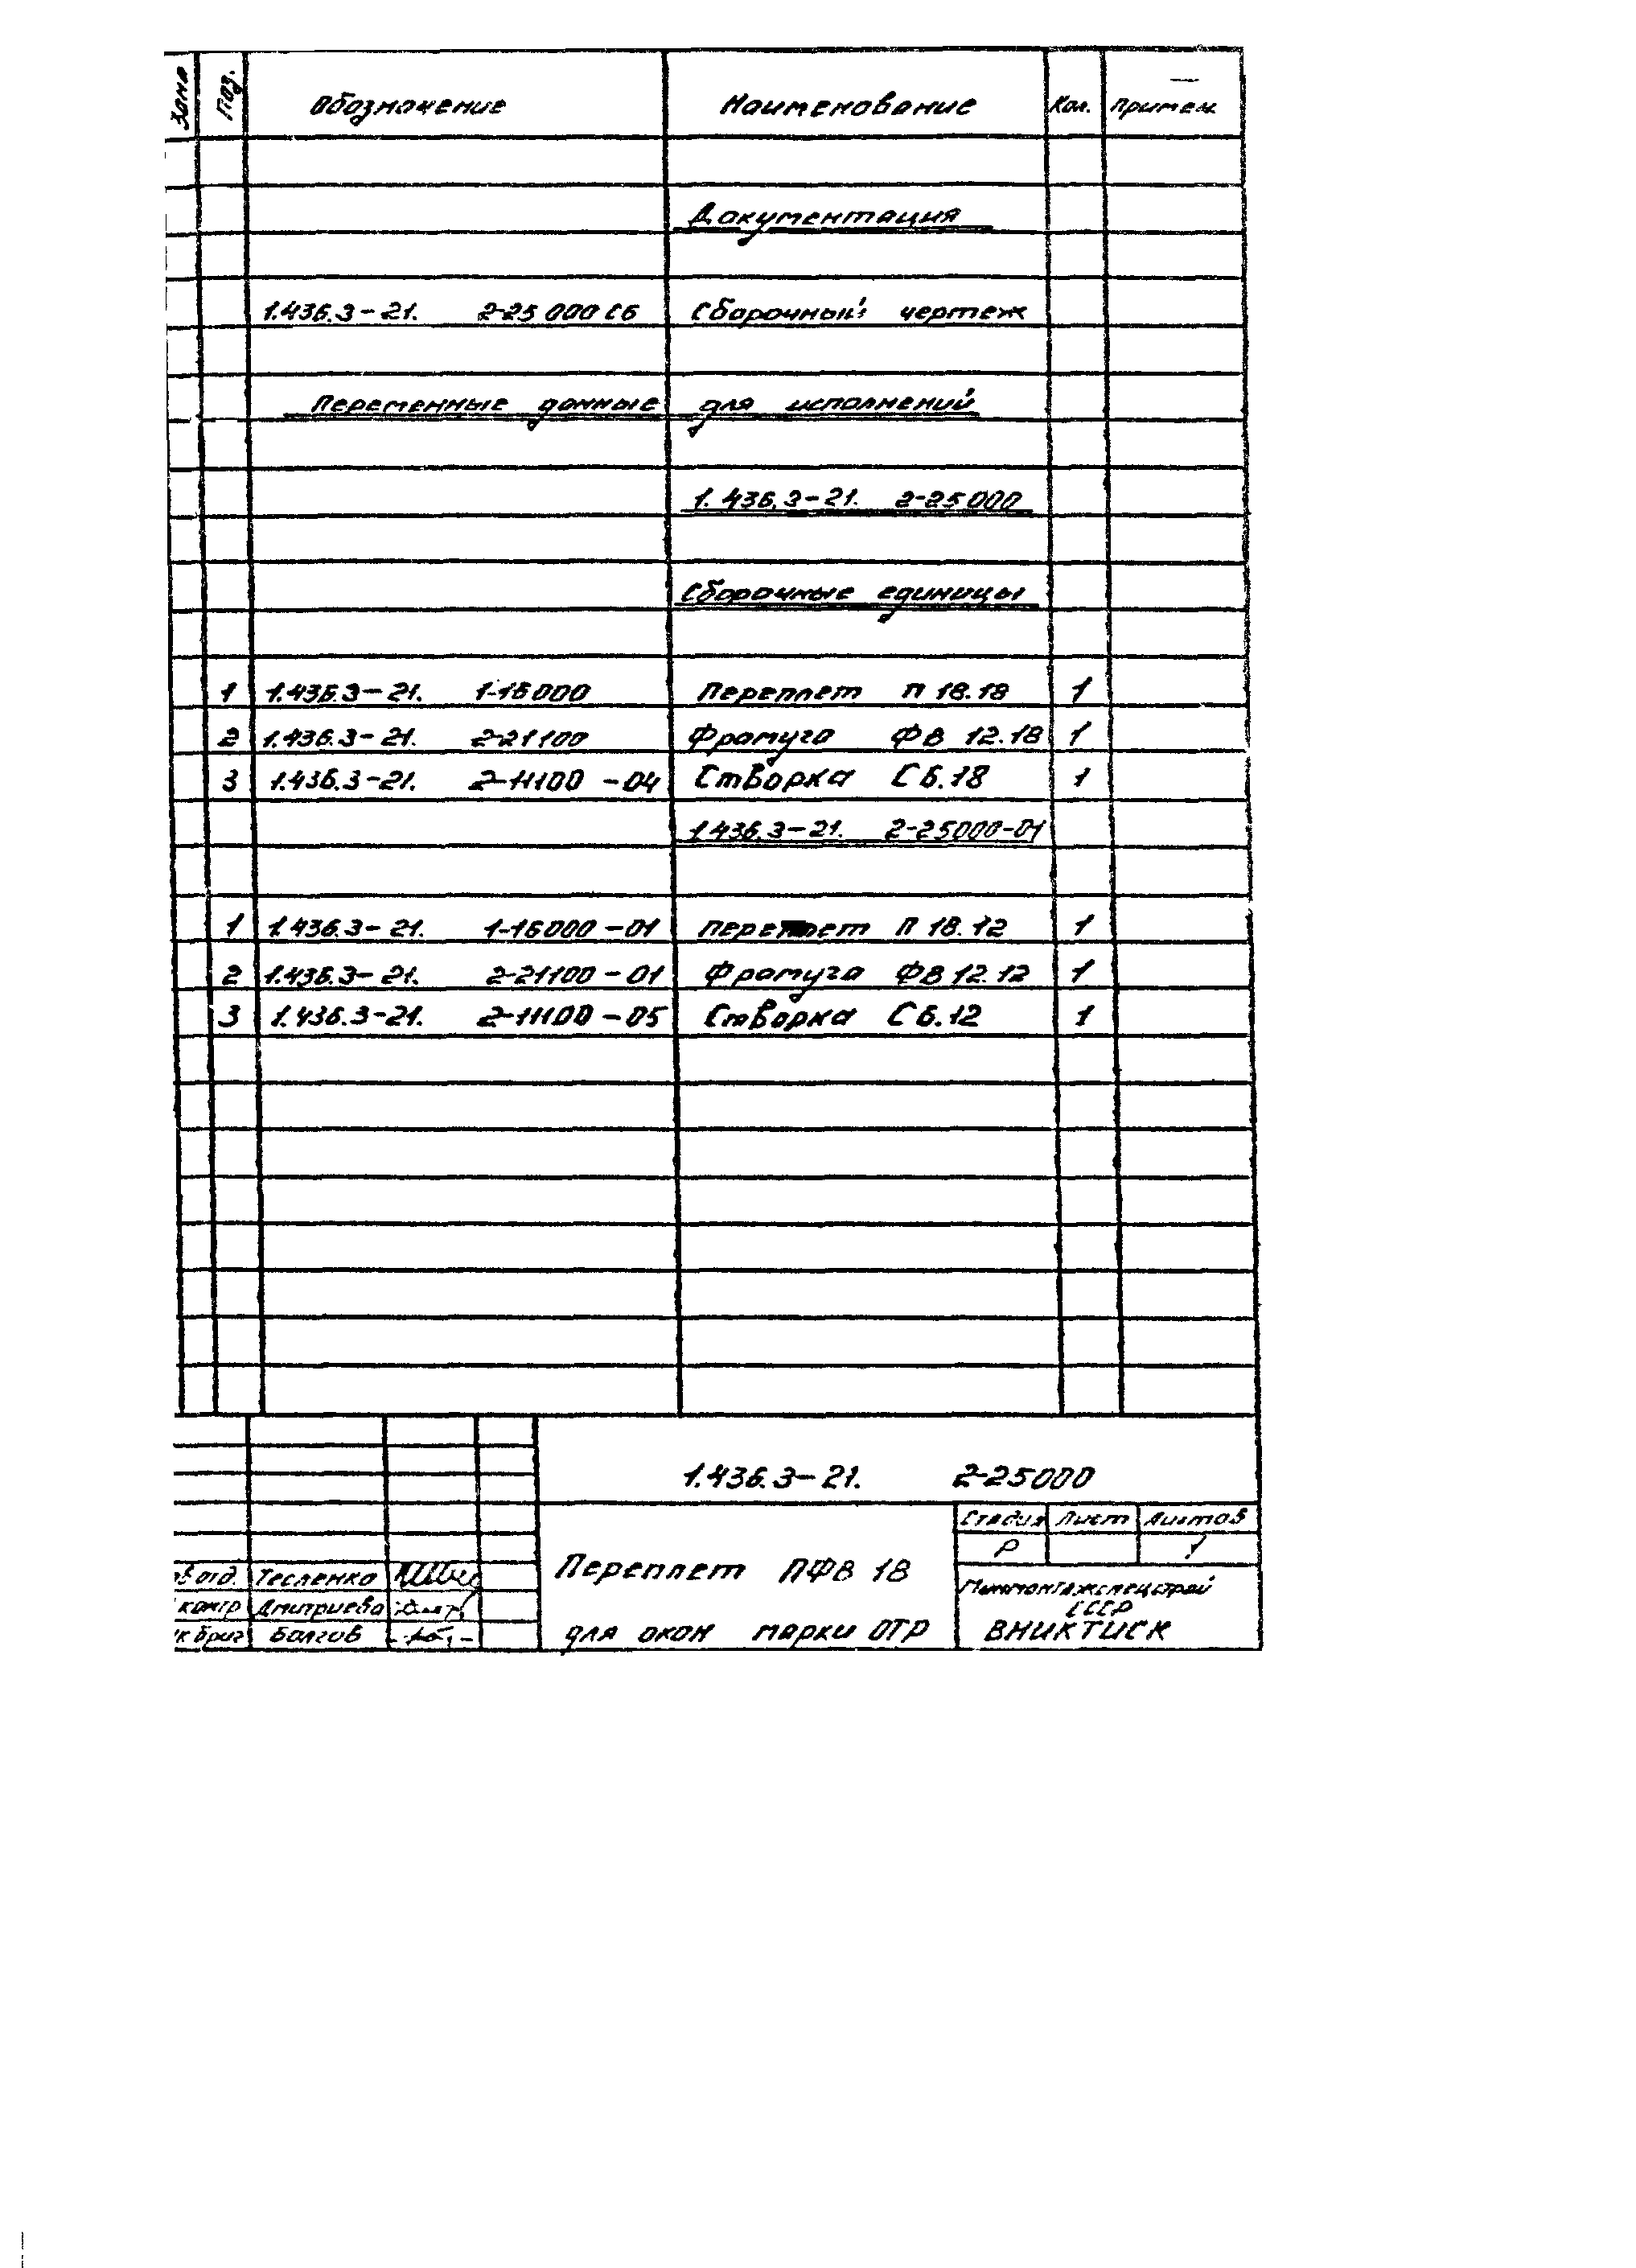 Зона Поз. Обозначение Наименование Кол. Примеч.
Документация
1.436.3-21. 2-25000 СБ Сборочный чертеж
Переменные данные для исполнений
1.436.3-21. 2-25000
Сборочные единицы
1 1.436.3-21. 1-16000 Переплет П 18.18 1
2 1.436.3-21. 2-21100 Фрамуга ФВ 12.18 1
3 1.436.3-21. 2-11100 -04 Створка С 6.18 1
1.436.3-21. 2-25000-01
1 1.436.3-21. 1-16000 -01 Переплет П 18.12 1
2 1.436.3-21. 2-21100 -01 Фрамуга ФВ 12.12 1
3 1.436.3-21. 2-11100 -05 Створка С 6.12 1
1.436.3-21. 2-25000
Стадия Лист Листов
Р 1
Переплет ПФВ 18
для окон марки ОТР
Минмонтажспецстрой
СССР
ВНИКТИСК
отд. Тесленко
контр Дмитриева
бриг Болгов